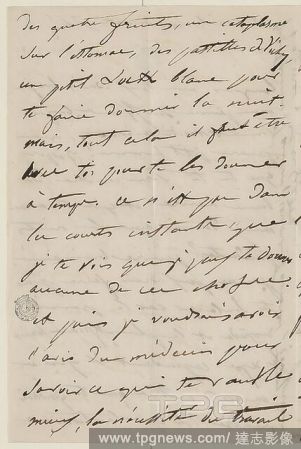 des quatre fruits, un cataplasme
sur l'estomac, des pastilles de Vichy
un ptit Look blanc pour
te faire dormir la nuit
mais, tout cela il faut être
avec toi pour te les donner
à temps, ce n'est que dans
les courts instants que
je te vois que je puis te donner
aucune de ces choses.
et puis je voudrais avoir
l'avis du médecin pour
savoir ce qui te vaut le
mieux, la nécessité de travail
TPG
www.tpgnews.com/達志影像